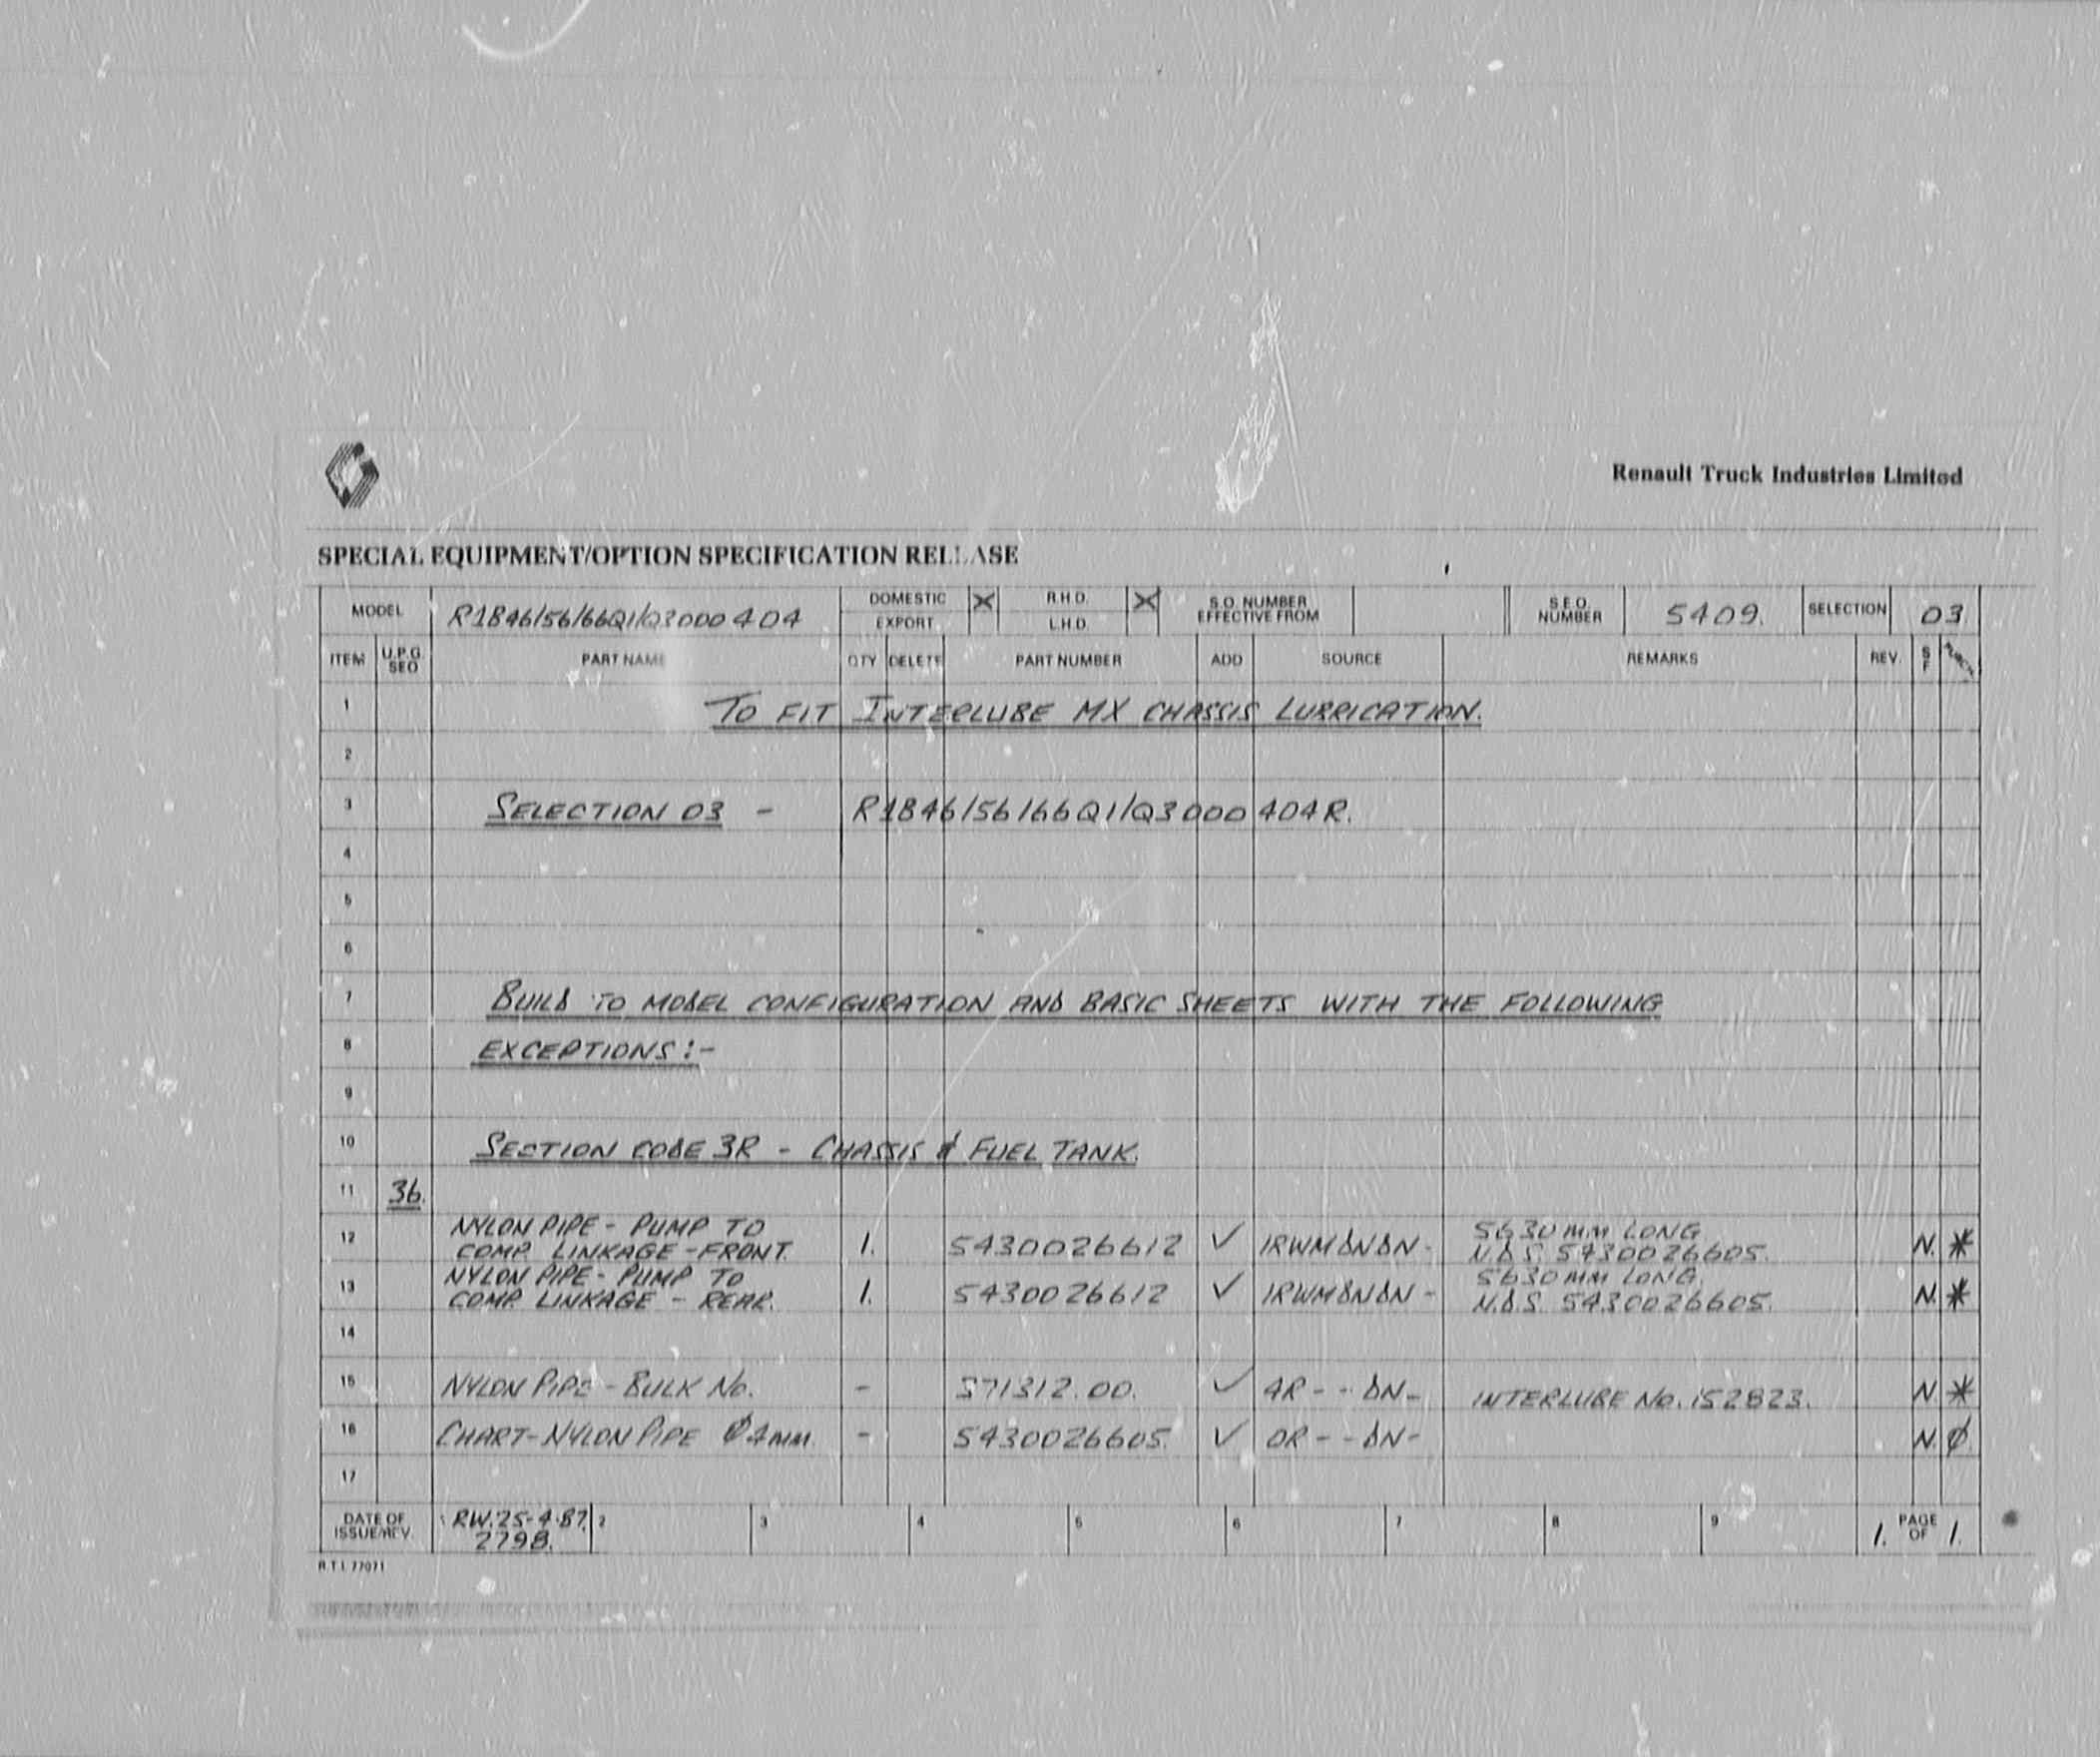 Renault Truck Industries Limited
SPECIAL EQUIPMENT/OPTION SPECIFICATION RELEASE
MODEL R1846/56/66Q1/Q3000404 DOMESTIC X R.H.D. X S.O. NUMBER EFFECTIVE FROM S.E.O. NUMBER 5409. SELECTION 03.
EXPORT L.H.D.
ITEM U.P.G. SEO PART NAME QTY DELETE PART NUMBER ADD SOURCE REMARKS REV. S F
1 TO FIT INTERLUBE MX CHASSIS LUBRICATION.
2
3 SELECTION 03 - R1846/56/66Q1/Q3000404R.
4
5
6
7 BUILD TO MODEL CONFIGURATION AND BASIC SHEETS WITH THE FOLLOWING
8 EXCEPTIONS:-
9
10 SECTION CODE 3R - CHASSIS & FUEL TANK.
11 36.
12 NYLON PIPE - PUMP TO
COMP. LINKAGE - FRONT. 1. 5430026612 ✓ 1RWMDNDN- 5630MM LONG
N.D.S. 5430026605. N. *
13 NYLON PIPE - PUMP TO
COMP. LINKAGE - REAR. 1. 5430026612 ✓ 1RWMDNDN- 5630MM LONG.
N.D.S. 5430026605. N. *
14
15 NYLON PIPE - BULK No. - 571312.00. ✓ 4R--DN- INTERLUBE No. 152823. N. *
16 CHART-NYLON PIPE Ø4MM. - 5430026605. ✓ OR--DN- N. Ø
17
DATE OF ISSUE/REV. 1 RW. 25-4-87. 2 3 4 5 6 7 8 9 1. PAGE OF 1.
2798.
R.T.I. 77071